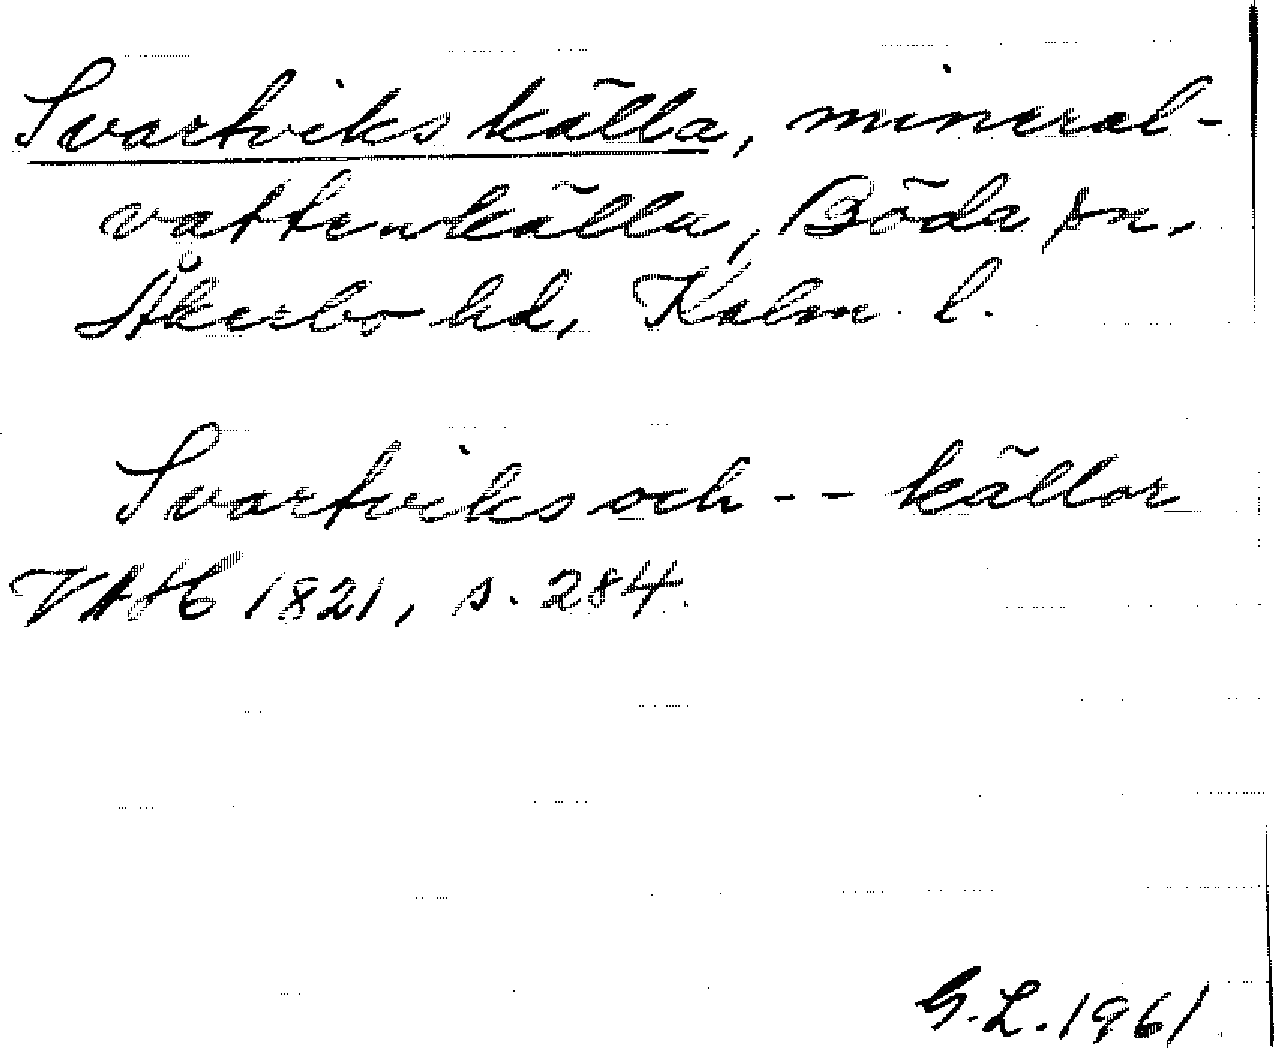 Svartviks källa, mineral-
vattenkälla, Böda sn.
Åkerbo hd, Kalm. l.
Svartviks och -- källor
VAH 1821, s. 284.
G.L. 1961